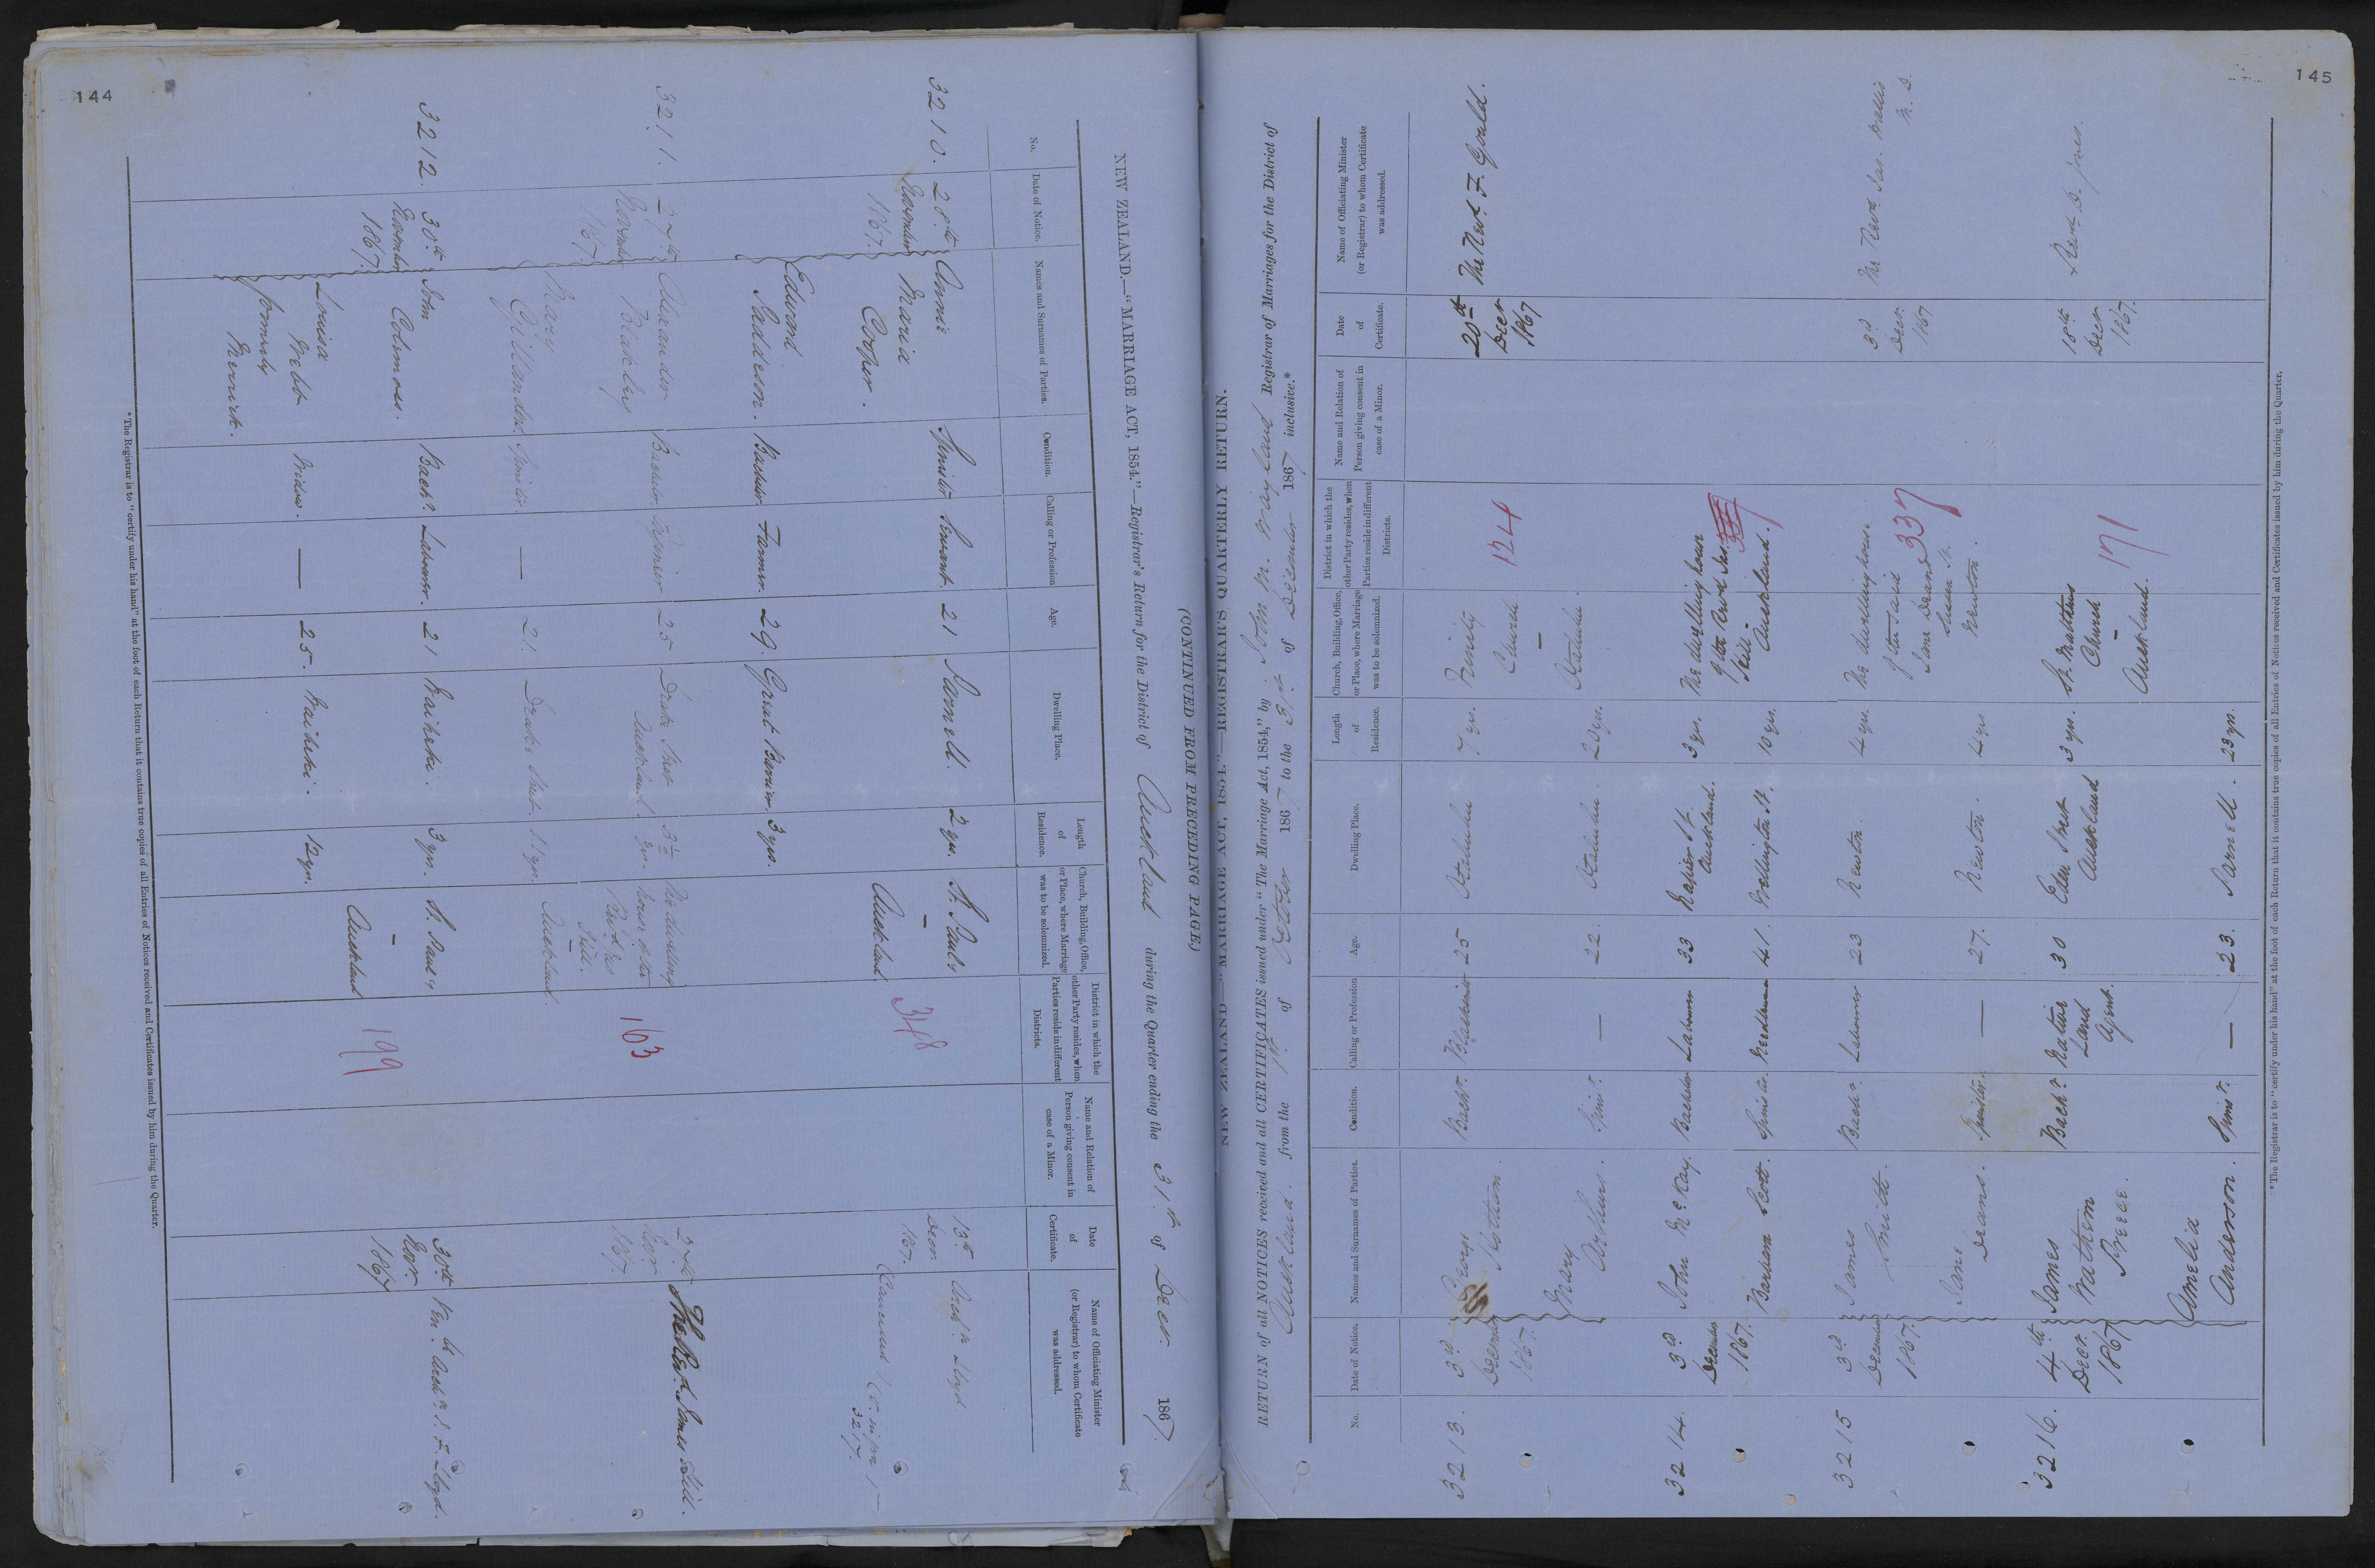 144
(CONTINUED FROM PRECEDING PAGE)
NEW ZEALAND.—"MARRIAGE ACT, 1854."—Registrar's Return for the District of Auckland during the Quarter ending the 31st of Decr. 1867
No.
Date of Notice.
Names and Surnames of Parties.
Condition.
Calling or Profession
Age.
Dwelling Place.
Length of Residence.
Church, Building, Office, or Place, where Marriage was to be solemnized.
District in which the other Party resides, when Parties reside in different Districts.
Name and Relation of Person giving consent in case of a Minor.
Date of Certificate.
Name of Officiating Minister (or Registrar) to whom Certificate was addressed.
3210. 28th Annie Spinster Servant. 21 Parnell. 2 yrs. St. Paul's 13th
November Maria — Decr.
1867. Cooper. Auckland. 1867.
348
3217.
Edward Bachelor. Farmer. 29. Great Barrier. 3 yrs.
Saddeson.
3211. 27th Alexander Bachelor 25 Drake Street 3½ The dwelling 27th The Revd James Hill.
November Blakley Auckland. yrs. house of the Novr.
1867. Revd Jas 1867.
Hill.
163
Mary Spinster. — 21. Drake Street. 11 yrs. Auckland.
Gillanders.
3212. 30th John Bachr. Labourer. 21 Waiheke. 3 yrs. St. Paul's 30th Ven. Archn. J. F. Lloyd.
November Colmoss. — Novr.
1867. Auckland 1867
199
Louisa Widow. — 25. Waiheke. 12 yrs.
Webb
formerly
*The Registrar is to "certify under his hand" at the foot of each Return that it contains true copies of all Entries of Notices received and Certificates issued by him during the Quarter.
145
NEW ZEALAND—"MARRIAGE ACT, 1854."—REGISTRAR'S QUARTERLY RETURN.
RETURN of all NOTICES received and all CERTIFICATES issued under "The Marriage Act, 1854," by John M. Wayland Registrar of Marriages for the District of
Auckland. from the 1st. of October 1867 to the 31st. of December 1867 inclusive.*
No.
Date of Notice.
Names and Surnames of Parties.
Condition.
Calling or Profession
Age.
Dwelling Place.
Length of Residence.
Church, Building, Office, or Place, where Marriage was to be solemnized.
District in which the other Party resides, when Parties reside in different Districts.
Name and Relation of Person giving consent in case of a Minor.
Date of Certificate.
Name of Officiating Minister (or Registrar) to whom Certificate was addressed.
3213. 3d George Bachr. Blacksmith 25 Otahuhu 7 yrs. Trinity 124 20th The Revd. F. Gould.
December Church Decr
1867. — 1867
Mary Spinr. — 22. Otahuhu. 20 yrs. Otahuhu.
Arthurs.
3214. 3d John McKay. Bachelor Labourer 33 Napier St. 3 yrs. The dwelling house
December Auckland. of the Revd Jas.
1867. Hill -
Barbara Scott. Spinster. 41. Wellington St. 10 yrs. Auckland.
3215 3d James Bachr. Labourer 23 Newton. 4 yrs. The dwelling house 3d The Revd. Jas. Wallis
December Smith. of the said Decr. M. D.
1867. Jane Deans 337 1867
Jane Spinster. — 27. Newton. 4 yrs Newton.
Deans.
3216. 4th James Bachr. Native 30 Eden Street 3 yrs. St. Matthews 171 18th Revd D. Jones.
Decr. Wathem Land Auckland Church Decr
1867 Preece. Agent. — 1867.
Auckland.
Amelia Spinsr. — 23. Parnell. 23 yrs.
Anderson.
*The Registrar is to "certify under his hand" at the foot of each Return that it contains true copies of all Entries of Notices received and Certificates issued by him during the Quarter.